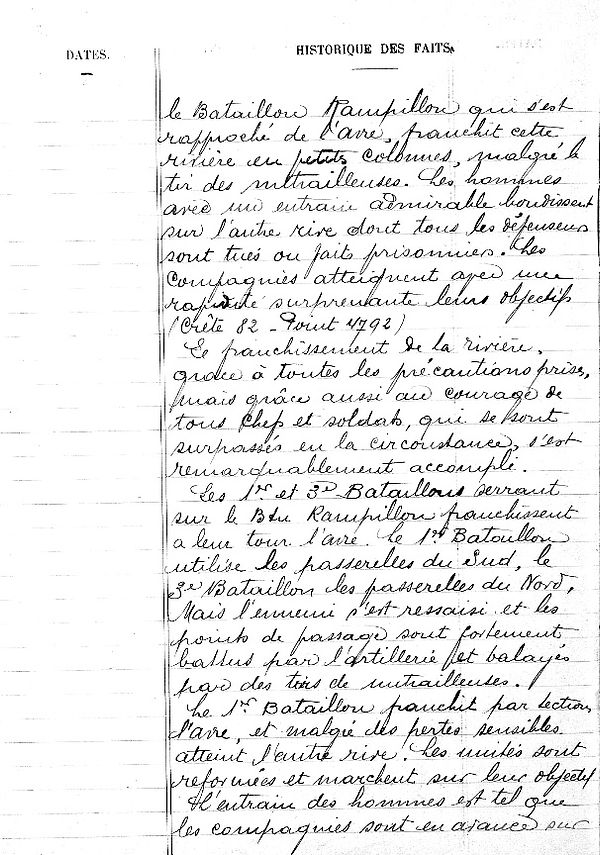 DATES.
HISTORIQUE DES FAITS.
le Bataillon Rampillon qui s'est
rapproché de l'Avre, franchit cette
rivière en petits colonnes, malgré le
tir des mitrailleuses. Les hommes
avec un entrain admirable bondissent
sur l'autre rive dont tous les défenseurs
sont tués ou faits prisonniers. Les
Compagnies atteignent avec une
rapidité surprenante leurs objectifs
(Crête 82 - Point 4792)
Le franchissement de la rivière,
grâce à toutes les précautions prises,
mais grâce aussi au courage de
tous Chefs et soldats, qui se sont
surpassés en la circonstance, s'est
remarquablement accompli.
Les 1er et 3e Bataillons serrant
sur le Btn Rampillon franchissent
a leur tour l'Avre. Le 1er Bataillon
utilise les passerelles du Sud, le
3e Bataillon les passerelles du Nord,
Mais l'ennemi s'est ressaisi et les
points de passage sont fortement
battus par l'artillerie et balayés
par des tirs de mitrailleuses.
Le 1er Bataillon franchit par section
l'Avre, et malgré des pertes sensibles
atteint l'autre rive. Les unités sont
reformées et marchent sur leur objectif
L'entrain des hommes est tel que
les compagnies sont en avance sur